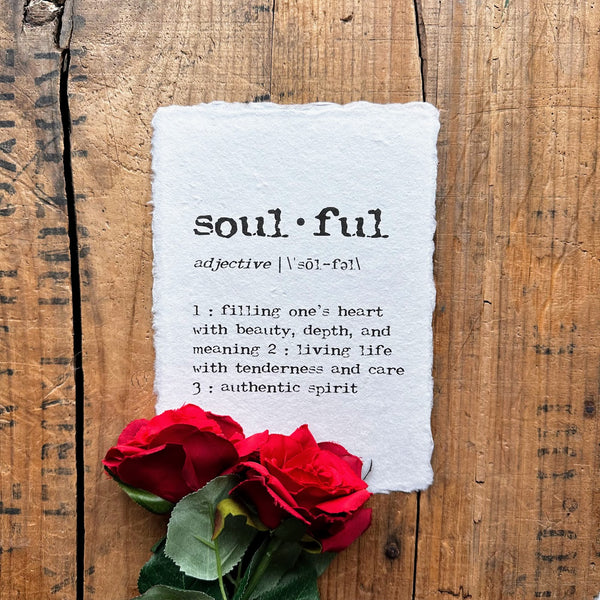 soul•ful
adjective | \ˈsōl-fəl\
1 : filling one's heart
with beauty, depth, and
meaning 2 : living life
with tenderness and care
3 : authentic spirit